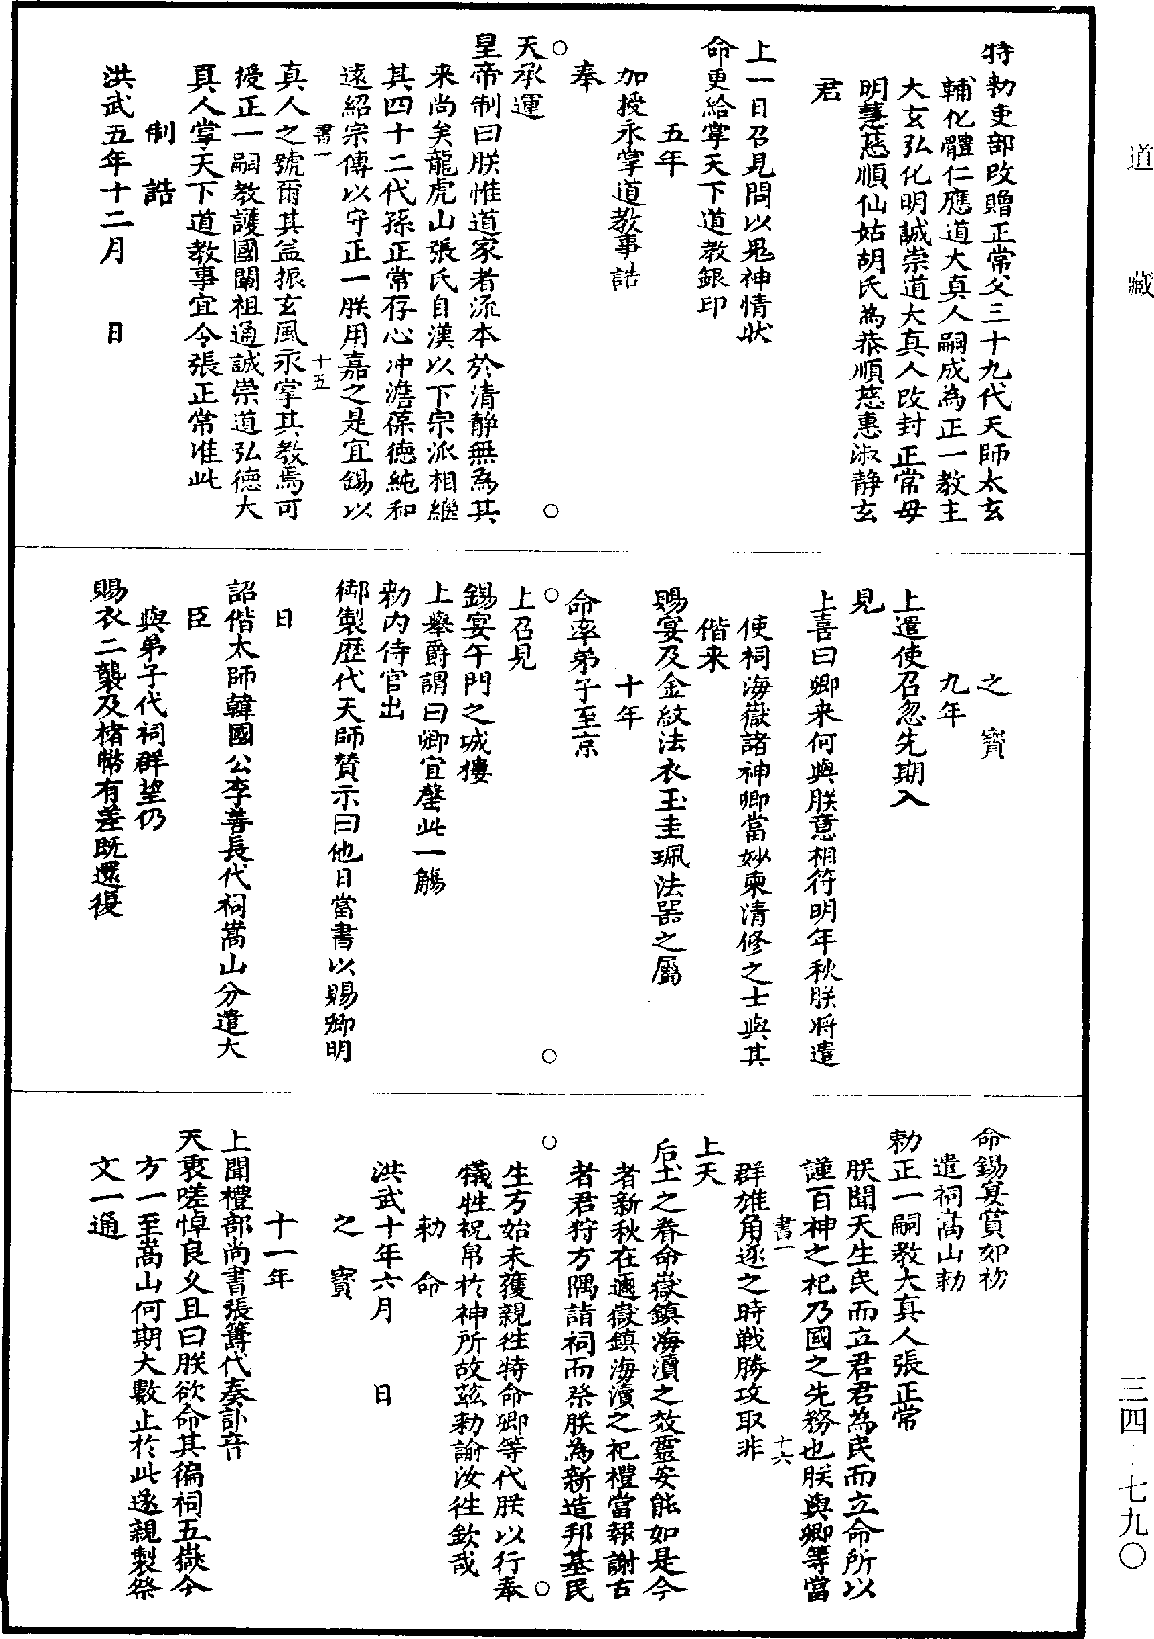 道藏
特勑吏部改贈正常父三十九代天師太玄
輔化體仁應道大真人嗣成為正一教主
大玄弘化明誠崇道大真人改封正常母
明慧慈順仙姑胡氏為恭順慈惠淑静玄
君
上一日召見問以鬼神情狀
命更給掌天下道教銀印
五年
加授永掌道教事誥
奉
天承運
皇帝制曰朕惟道家者流本於清静無為其
来尚矣龍虎山張氏自漢以下宗派相繼
其四十二代孫正常存心冲澹葆德純和
遠紹宗傳以守正一朕用嘉之是宜錫以
書一 十五
真人之號爾其益振玄風永掌其教焉可
授正一嗣教護國闡祖通誠崇道弘德大
真人掌天下道教事宜令張正常准此
制誥
洪武五年十二月 日
之寶
九年
上遣使召忽先期入
見
上喜曰卿来何與朕意相符明年秋朕将遣
使祠海嶽諸神卿當妙柬清修之士與其
偕来
賜宴及金紋法衣玉圭珮法器之屬
十年
命率弟子至京
上召見
錫宴午門之城摟
上舉爵謂曰卿宜罄此一觴
勑内侍官出
御製歷代天師賛示曰他日當書以賜卿明
日
詔偕太師韓國公李善長代祠嵩山分遣大
臣
與弟子代祠群望仍
賜衣二襲及楮幣有差既還復
命錫宴賞如初
遣祠嵩山勑
勑正一嗣教大真人張正常
朕聞天生民而立君君為民而立命所以
謹百神之祀乃國之先務也朕與卿等當
書一 十六
群雄角逐之時戰勝攻取非
上天
后土之眷命嶽鎮海瀆之效靈安能如是今
者新秋在邇嶽鎮海瀆之祀禮當報謝古
者君狩方隅詣祠而祭朕為新造邦基民
生方始未獲親徃特命卿等代朕以行奉
犧牲祝帛於神所故兹勑諭汝徃欽哉
勑命
洪武十年六月 日
之寶
十一年
上聞禮部尚書張籌代奏訃音
天衷嗟悼良久且曰朕欲命其徧祠五嶽今
方一至嵩山何期大數止於此遂親製祭
文一通
三四·七九〇